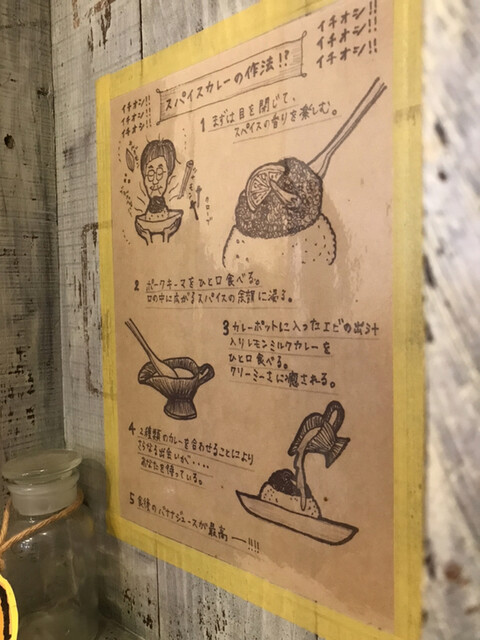 イチオシ!!
イチオシ!!
イチオシ!!
スパイスカレーの作法!?
イチオシ!!
イチオシ!!
イチオシ!!
1 まずは目を閉じて、
スパイスの香りを楽しむ。
シナモン
クローブ
2 ポークキーマをひと口食べる。
口の中に広がるスパイスの余韻に浸る。
3 カレーポットに入ったエビの出汁
入りレモンミルクカレーを
ひと口食べる。
クリーミーさに癒される。
4 2種類のカレーを合わせることにより
さらなる出会いが‥‥
あなたを待っている。
5 食後のバナナジュースが最高ー!!!!